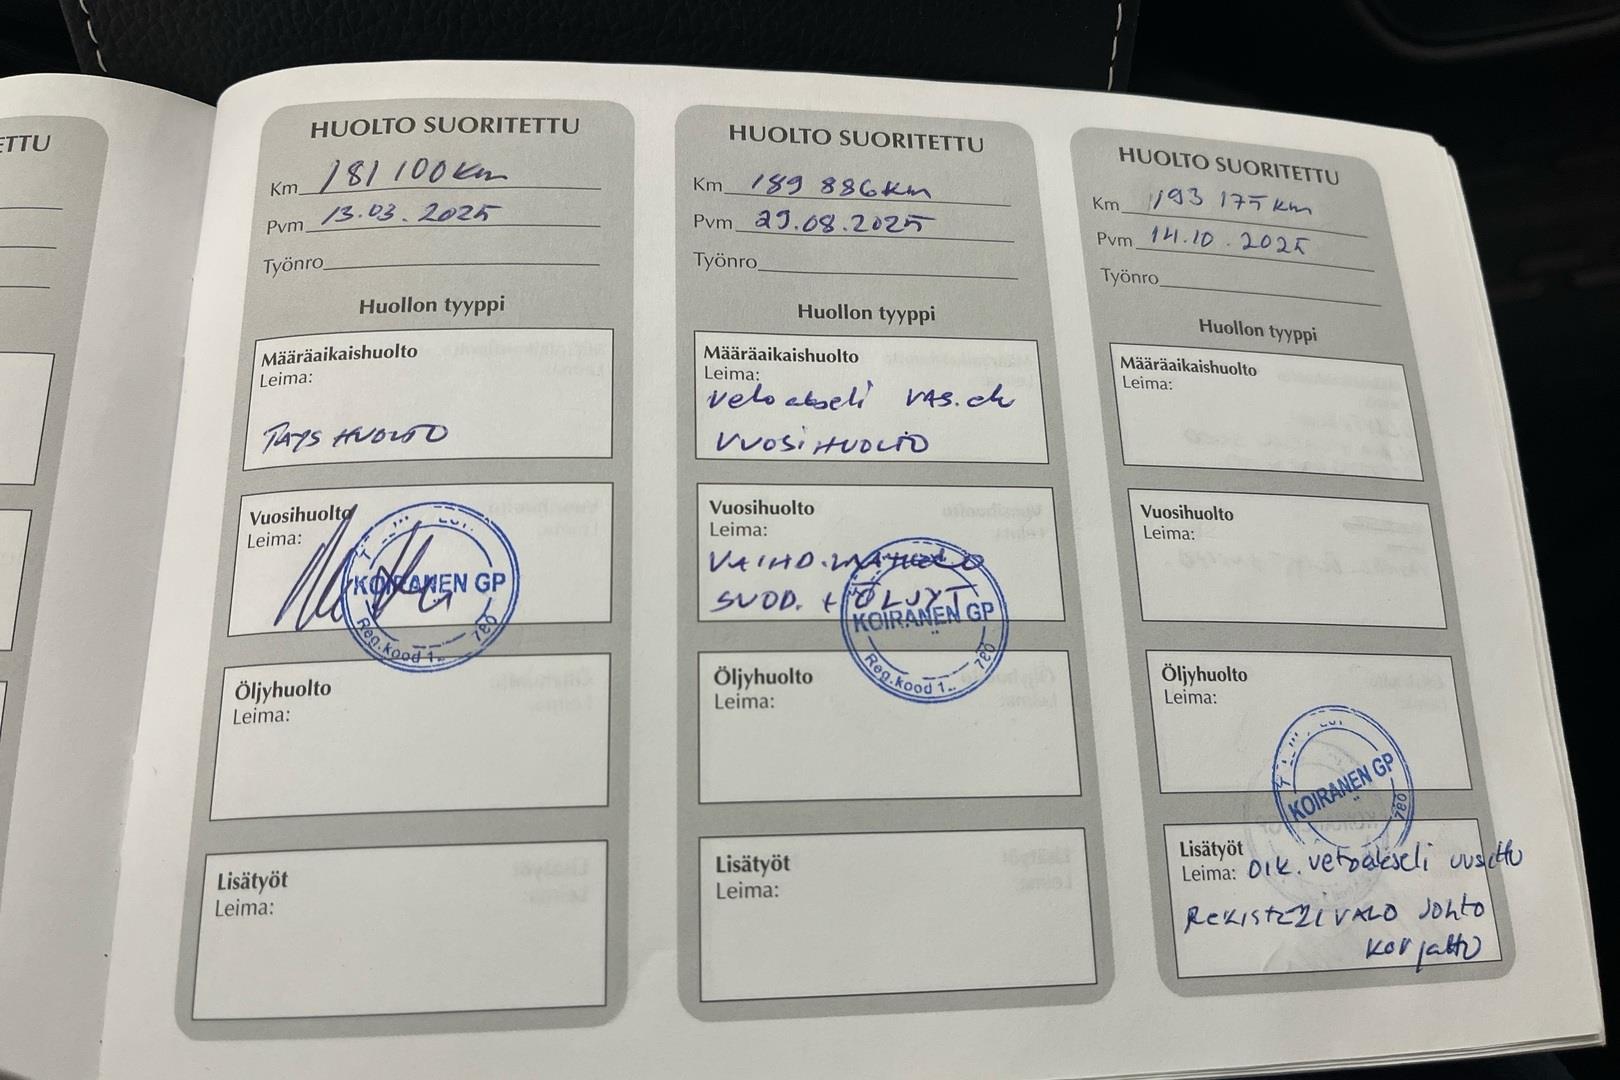 ETTU
HUOLTO SUORITETTU
Km 181 100 km
Pvm 13.03.2025
Työnro
Huollon tyyppi
Määräaikaishuolto
Leima:
TÄYS HUOLTO
Vuosihuolto
Leima:
KOIRANEN GP
Reg.kood 1.. 780
Öljyhuolto
Leima:
Lisätyöt
Leima:
HUOLTO SUORITETTU
Km 189 886 km
Pvm 29.08.2025
Työnro
Huollon tyyppi
Määräaikaishuolto
Leima:
Vetoakseli VAS.
VUOSIHUOLTO
Vuosihuolto
Leima:
VAIHD.
SUOD. + ÖLJYT
KOIRANEN GP
Reg.kood 1.. 780
Öljyhuolto
Leima:
Lisätyöt
Leima:
HUOLTO SUORITETTU
Km 193 175 km
Pvm 14.10.2025
Työnro
Huollon tyyppi
Määräaikaishuolto
Leima:
Vuosihuolto
Leima:
Öljyhuolto
Leima:
KOIRANEN GP
780
Lisätyöt
Leima: OIK. vetoakseli uusittu
REKISTERIVALO Johto
korjattu